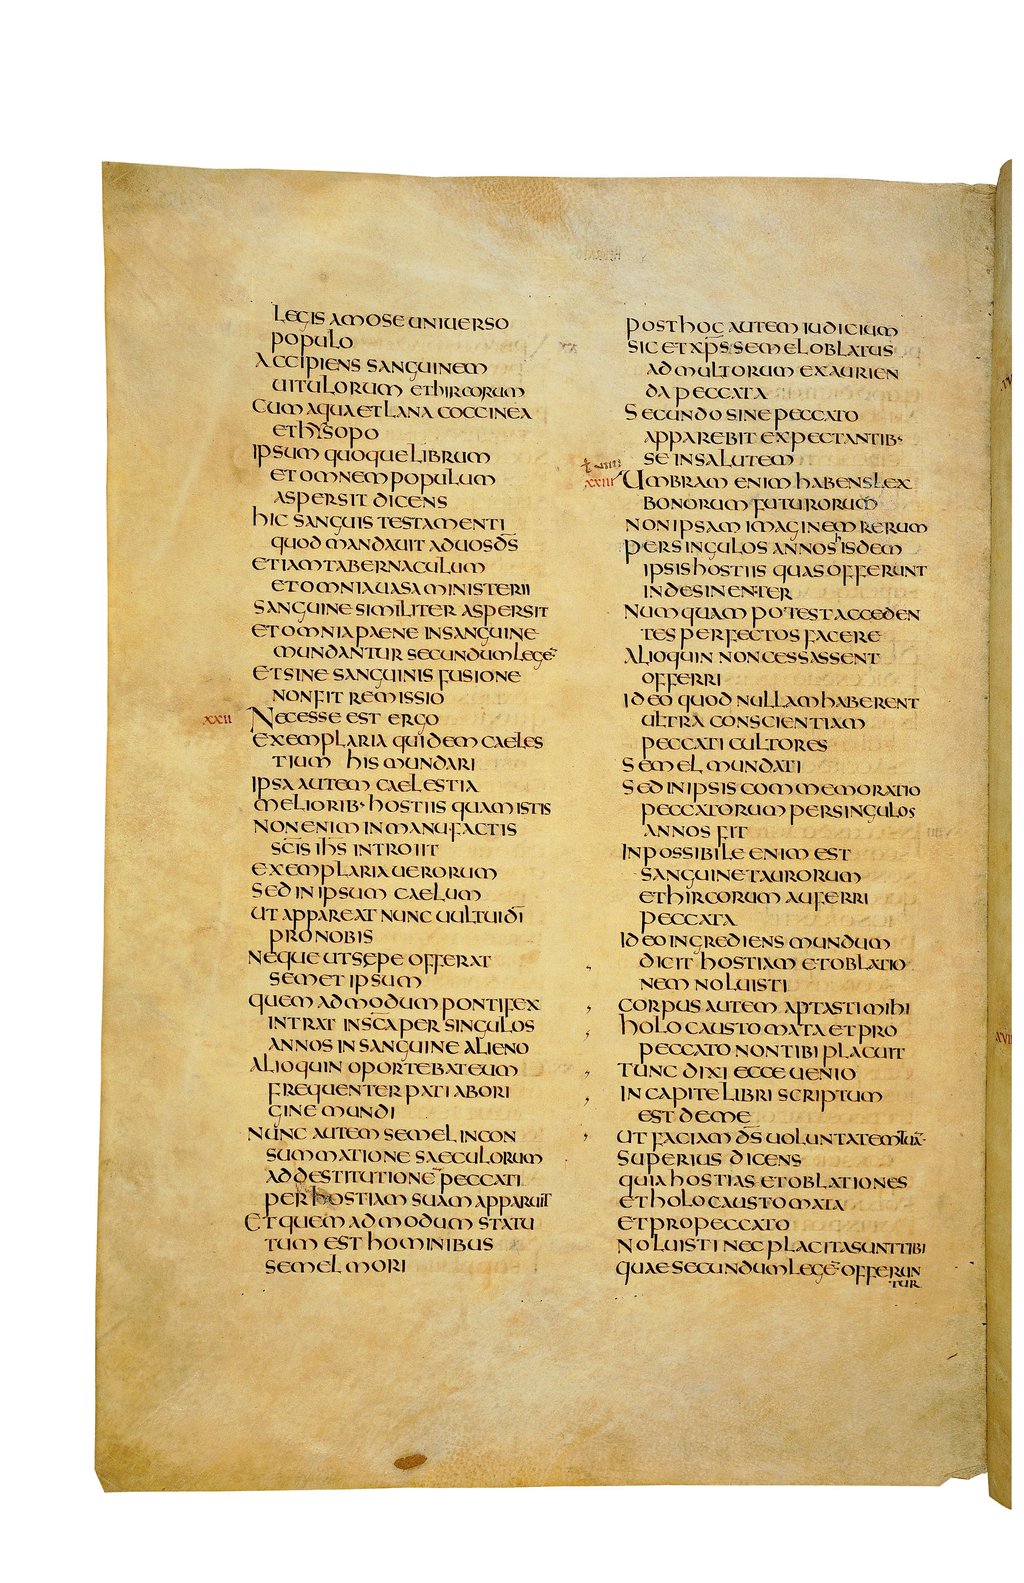 LEGIS A MOSE UNIUERSO
POPULO
ACCIPIENS SANGUINEM
UITULORUM ET HIRCORUM
CUM AQUA ET LANA COCCINEA
ET HYSOPO
IPSUM QUOQUE LIBRUM
ET OMNEM POPULUM
ASPERSIT DICENS
HIC SANGUIS TESTAMENTI
QUOD MANDAUIT AD UOS D̅S̅
ETIAM TABERNACULUM
ET OMNIA UASA MINISTERII
SANGUINE SIMILITER ASPERSIT
ET OMNIA PAENE IN SANGUINE
MUNDANTUR SECUNDUM LEGE̅
ET SINE SANGUINIS FUSIONE
NON FIT REMISSIO
XXII NECESSE EST ERGO
EXEMPLARIA QUIDEM CAELES
TIUM HIS MUNDARI
IPSA AUTEM CAELESTIA
MELIORIB· HOSTIIS QUAM ISTIS
NON ENIM IN MANUFACTIS
SC̅IS IH̅S INTROIIT
EXEMPLARIA UERORUM
SED IN IPSUM CAELUM
UT APPAREAT NUNC UULTUI D̅I̅
PRO NOBIS
NEQUE UT SEPE OFFERAT
SEMET IPSUM
QUEM AD MODUM PONTIFEX
INTRAT IN SC̅A PER SINGULOS
ANNOS IN SANGUINE ALIENO
ALIOQUIN OPORTEBAT EUM
FREQUENTER PATI AB ORI
GINE MUNDI
NUNC AUTEM SEMEL IN CON
SUMMATIONE SAECULORUM
AD DESTITUTIONE̅ PECCATI
PER HOSTIAM SUAM APPARUIT
ET QUEM AD MODUM STATU
TUM EST HOMINIBUS
SEMEL MORI
POST HOC AUTEM IUDICIUM
SIC ET XP̅S SEMEL OBLATUS
AD MULTORUM EXAURIEN
DA PECCATA
SECUNDO SINE PECCATO
APPAREBIT EXPECTANTIB·
SE IN SALUTEM
XXIII UMBRAM ENIM HABENS LEX
BONORUM FUTURORUM
NON IPSAM IMAGINEM RERUM
PER SINGULOS ANNOS HISDEM
IPSIS HOSTIIS QUAS OFFERUNT
INDESINENTER
NUMQUAM POTEST ACCEDEN
TES PERFECTOS FACERE
ALIOQUIN NON CESSASSENT
OFFERRI
IDEO QUOD NULLAM HABERENT
ULTRA CONSCIENTIAM
PECCATI CULTORES
SEMEL MUNDATI
SED IN IPSIS COMMEMORATIO
PECCATORUM PER SINGULOS
ANNOS FIT
INPOSSIBILE ENIM EST
SANGUINE TAURORUM
ET HIRCORUM AUFERRI
PECCATA
IDEO INGREDIENS MUNDUM
DICIT HOSTIAM ET OBLATIO
NEM NOLUISTI
CORPUS AUTEM APTASTI MIHI
HOLOCAUSTOMATA ET PRO
PECCATO NON TIBI PLACUIT
TUNC DIXI ECCE UENIO
IN CAPITE LIBRI SCRIPTUM
EST DE ME
UT FACIAM D̅S̅ UOLUNTATEM TUA̅
SUPERIUS DICENS
QUIA HOSTIAS ET OBLATIONES
ET HOLOCAUSTOMATA
ET PRO PECCATO
NOLUISTI NEC PLACITA SUNT TIBI
QUAE SECUNDUM LEGE̅ OFFERUN
TUR